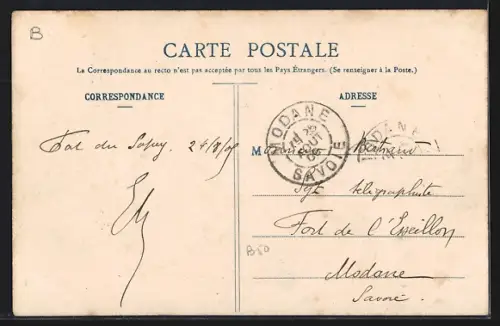 B
CARTE POSTALE
La Correspondance au recto n'est pas acceptée par tous les Pays Étrangers. (Se renseigner à la Poste.)
CORRESPONDANCE
ADRESSE
MODANE
AOUT
SAVOIE
Fort du
Monsieur Bertrand
Sgt télégraphiste
Fort de l'Esseillon
Modane
Savoie
B50